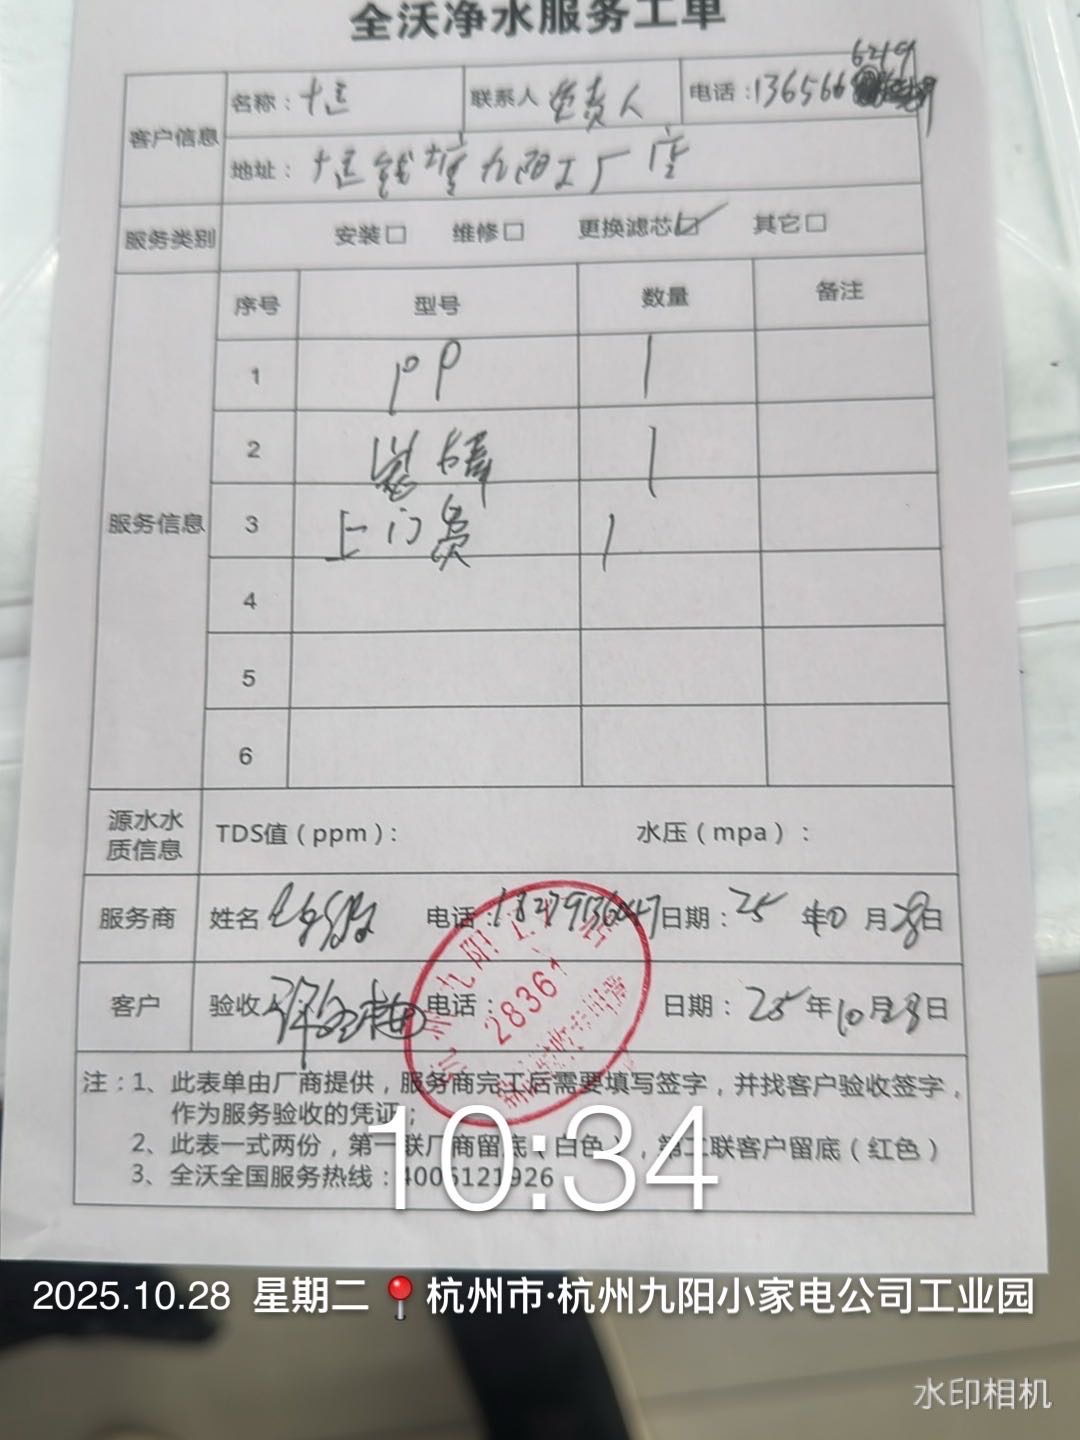 全沃净水服务工单
客户信息 名称：十足 联系人 负责人 电话：136566 6219
地址：十足钱塘九阳工厂店
服务类别 安装☐ 维修☐ 更换滤芯☑ 其它☐
服务信息 序号 型号 数量 备注
1 PP 1
2 1
3 上门费 1
4
5
6
源水水质信息 TDS值（ppm）： 水压（mpa）：
服务商 姓名 电话： 日期：25年10月28日
客户 验收人 电话： 日期：25年10月28日
28361
注：1、此表单由厂商提供，服务商完工后需要填写签字，并找客户验收签字，
作为服务验收的凭证；
2、此表一式两份，第一联厂商留底（白色），第二联客户留底（红色）
3、全沃全国服务热线：4006121926
10:34
2025.10.28 星期二 杭州市·杭州九阳小家电公司工业园
水印相机